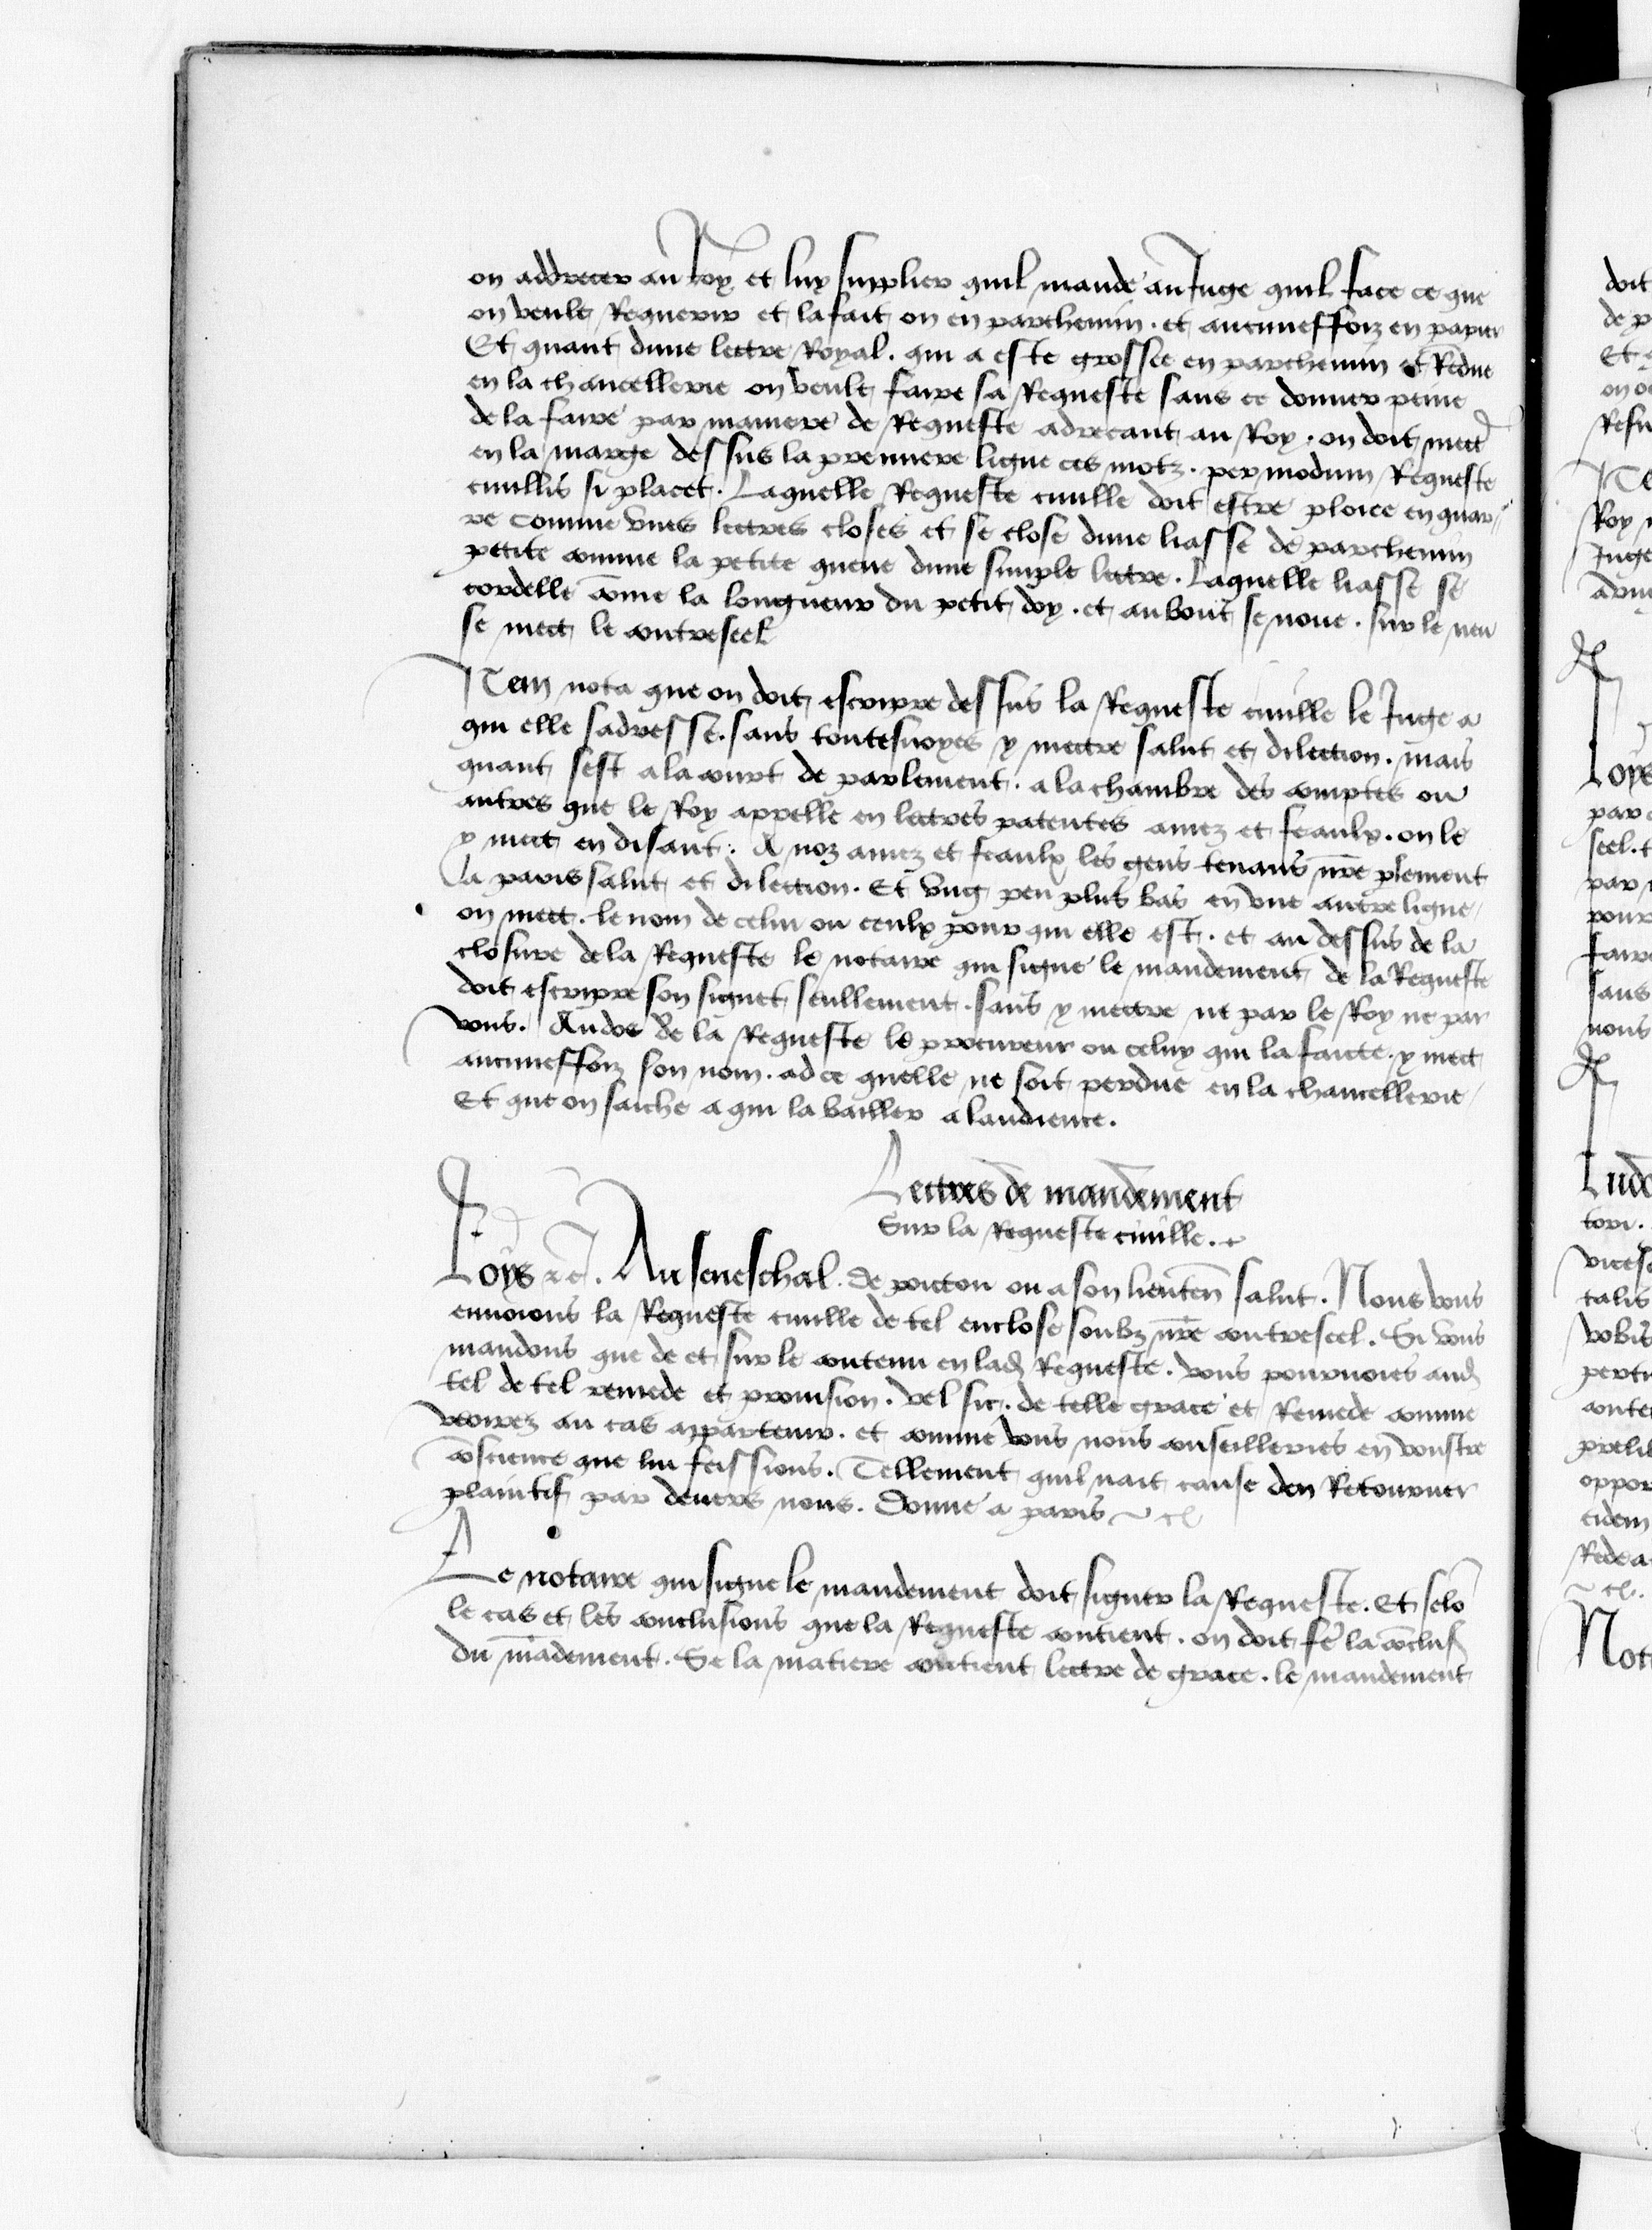 on addrecer au Roy et luy supplier quil mande au Juge quil face ce que
on veult Requerir et la fait on en parchemin . et aucuneffoiz en papier
Et quant dune lettre Royal . qui a este grossee en parchemin et Redue
en la chancellerie on veult faire sa Requeste sans ce donner peine
de la faire par maniere de Requeste adrecant au Roy . on doit mect
en la marge dessus la premiere ligne ces motz . per modum Requeste
ciuillis si placet . Laquelle Requeste ciuille doit estre ploiee en quar
re comme vnes lectres closes et se close dune liasse de parchemin
petite comme la petite queue dune simple lettre . Laquelle liasse se
cordelle cōme la longueur du petit doy . et au bout se noue . sur le neu
se mect le contreseel
ITem nota que on doit escripre dessus la Requeste ciuille le Juge a
qui elle sadresse . sans toutesuoyes y mectre salut et dilection . mais
quant sest a la court de parlement . a la chambre des comptes ou
autres que le Roy appelle en lectres patentes amez et feaulx . on le
y mect en disant . A noz amez et feaulx les gens tenans nr̄e plement
a paris salut et dilection . Et vng peu plus bas en vne autre ligne
on mect . le nom de celui ou ceulx pour qui elle est . et au dessus de la
closure de la Requeste le notaire qui signe le mandement de la Requeste
doit escripre son signet seullement . sans y mectre ne par le Roy ne par
vous . Au dos de la Requeste le procureur ou celuy qui la faicte . y mect
aucuneffoiz son nom . ad ce quelle ne soit perdue en la chancellerie
Et que on saiche a qui la bailler a laudience .
Lectres de mandement
Sur la Requeste ciuille .
Loys &c . Au seneschal . de poictou ou a son lieuten̄ salut . Nous vous
enuoions la Requeste ciuille de tel enclose soubz nr̄e contreseel . Si vous
mandons que de et sur le contenu en lad Requeste . vous pouruoies aud
tel de tel remede et prouision . vel sic . de telle grace et Remede comme
verrez au cas appartenir . et comme vous nous conseilleries en vostre
cōscience que lui feissions . Tellement quil nait cause den Retourner
plaintif par deuers nous . Donne a paris &c
Le notaire qui signe le mandement doit signer la Requeste . Et selō
le cas et les conclusions que la Requeste contient . on doit fē la cōclus
du mādement . Se la matiere contient lectre de grace . le mandement